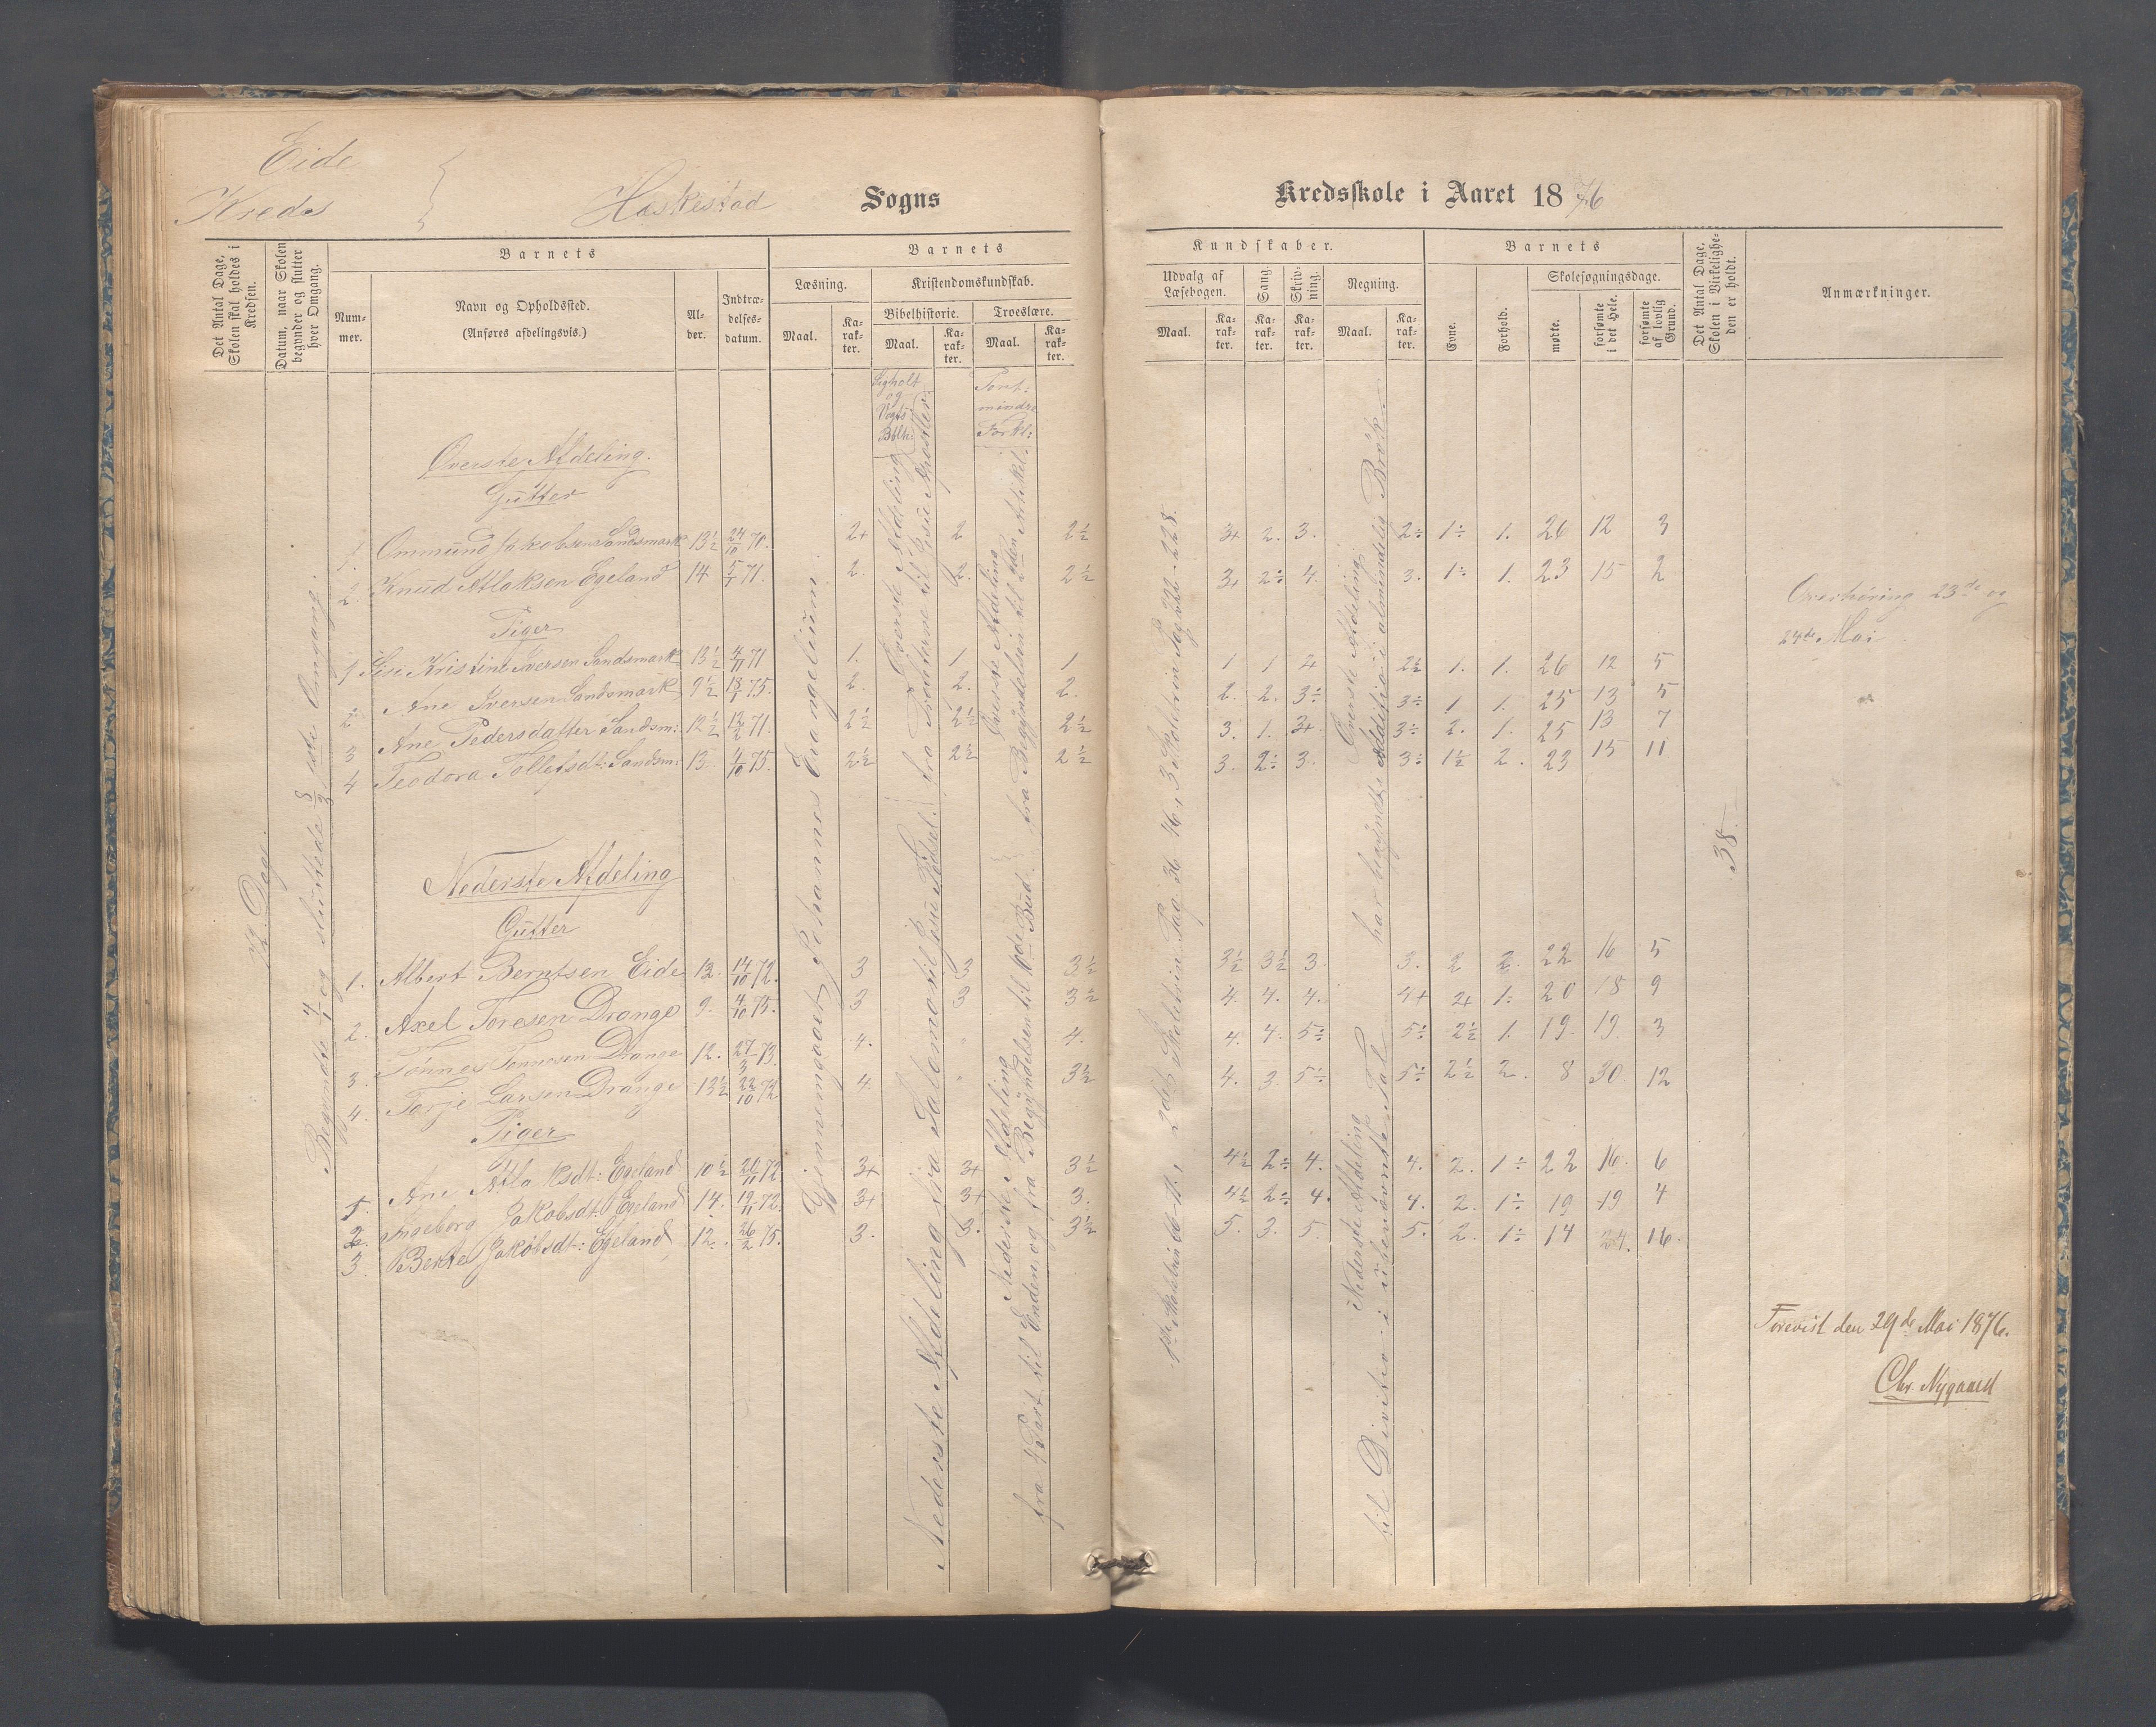 Eide
Kreds
Heskestad Sogns
Kredsskole i Aaret 1876
Det Antal Dage, Skolen skal holdes i Kredsen.
Datum, naar Skolen begynder og slutter hver Omgang.
Barnets
Num-mer.
Navn og Opholdssted.
(Anføres afdelingsvis.)
Al-der.
Indtræ-delses-datum.
Barnets
Læsning.
Maal.
Ka-rak-ter.
Kristendomskundskab.
Bibelhistorie.
Maal.
Ka-rak-ter.
Troeslære.
Maal.
Ka-rak-ter.
Kundskaber.
Udvalg af Læsebogen.
Maal.
Ka-rak-ter.
Sang.
Ka-rak-ter.
Skriv-ning.
Ka-rak-ter.
Regning.
Maal.
Ka-rak-ter.
Barnets
Evne.
Forhold.
Skolesøgningsdage.
mødte.
forsømte i det Hele.
forsømte af lovlig Grund.
Det Antal Dage, Skolen i Virkelighe-den er holdt.
Anmærkninger.
Dage.
Begyndte 4/1 og sluttede 8/3 1ste Omgang.
Gjennemgaaet Johannes Evangelium
Vogts Bblh:
Pont. mindre Forkl:
Øverste Afdeling fra Profeterne til Jesu Apostler.
Nederste Afdeling fra Salomo til Jesu Fødsel.
Øverste Afdeling fra Begyndelsen til 2den Artikel.
Nederste Afdeling
fra 4 Part til Enden, og fra Begyndelsen til 6de Bud.
Øverste Afdeling har begyndt Addition i almindelig Brøk.
Nederste Afdeling til Division i ubenævnte Tal
Øverste Afdeling.
Gutter
1. Ommund Jakobsen Sandsmark 13½ 24/10 70. 2+ 2 2½ 3+ 2. 3. 2÷ 1÷ 1. 26 12 3
2. Knud Atlaksen Egeland 14 5/1 71. 2. 2. 2½ 3+ 2÷ 4. 3. 1÷ 1. 23 15 2
Piger
1 Sisi Kristine Iversen Sandsmark 13½ 4/11 71 1. 1 1 1 1 2 2½ 1. 1. 26 12 5
2 Ane Iversen Sandsmark 9½ 18/1 75. 2. 2. 2. 2. 2. 3÷ 3÷ 1 1. 25 13 5
3 Ane Pedersdatter Sandsm: 12½ 12/2 71. 2½ 2½ 2½ 3. 1. 3+ 3÷ 2. 1. 25 13 7
4 Teodora Tollefsdt: Sandsm: 13 4/10 75. 2½ 2½ 2½ 3. 2÷ 3. 3÷ 1½ 2. 23 15 11
38.
Nederste Afdeling
Gutter
1. Albert Berntsen Eide 12. 14/10 72. 3 3 3½ 3½ 3½ 3. 3. 2 2. 22 16 5
2. Axel Toresen Drange 9. 4/10 75. 3 3 3½ 4. 4. 4. 4+ 2+ 1÷ 20 18 9
3. Tønnes Tønnesen Drange 12. 27/3 73. 4. 4. 4. 4. 5÷ 5÷ 2½ 1. 19. 19. 3
4. Tarje Larsen Drange 13½ 22/10 72 4. 3½ 4. 3. 5÷ 5÷ 2½ 2. 8 30. 12
Piger
1. Ane Atlaksdt: Egeland 10½ 20/11 72 3+ 3+ 3½ 4½ 2÷ 4. 4. 2. 1÷ 22 16. 6
2. Ingeborg Jakobsdt: Egeland 14. 19/11 72. 3+ 3+ 3. 4½ 2÷ 4. 4. 2. 1÷ 19 19 4
3. Berte Jakobsdt: Egeland 12. 26/2 75. 3. 3. 3½ 5. 3. 5. 5. 2. 1÷ 14 24. 16.
Overhøring 23de og
24de Mai
Forevist den 29de Mai 1876.
Chr. Nygaard